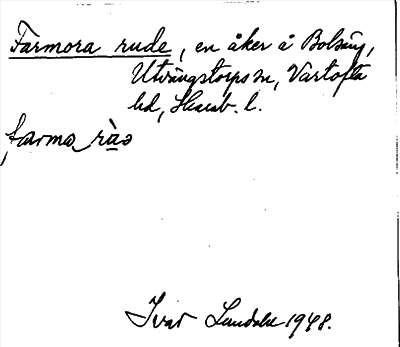 Farmora rude, en åker å Bolsäng,
Utvängstorps sn, Vartofta
hd, Skarab. l.
farmo
Ivar Lundahl 1948.